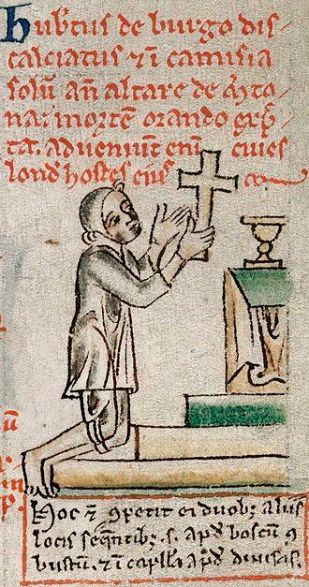 hubt's de burgo dis
calciatus ⁊ in camisia
solū an̄ altare de m̄to
na: mortē orando exp̄
ta. adveniūt enī cives
lond hostes ei'
Hoc ⁊ ꝯpetit ei duob; aliis
locis seq̄ntib;. s. apd' boscū ꝯ
bustū. ⁊ in capll'a apd' divisas.